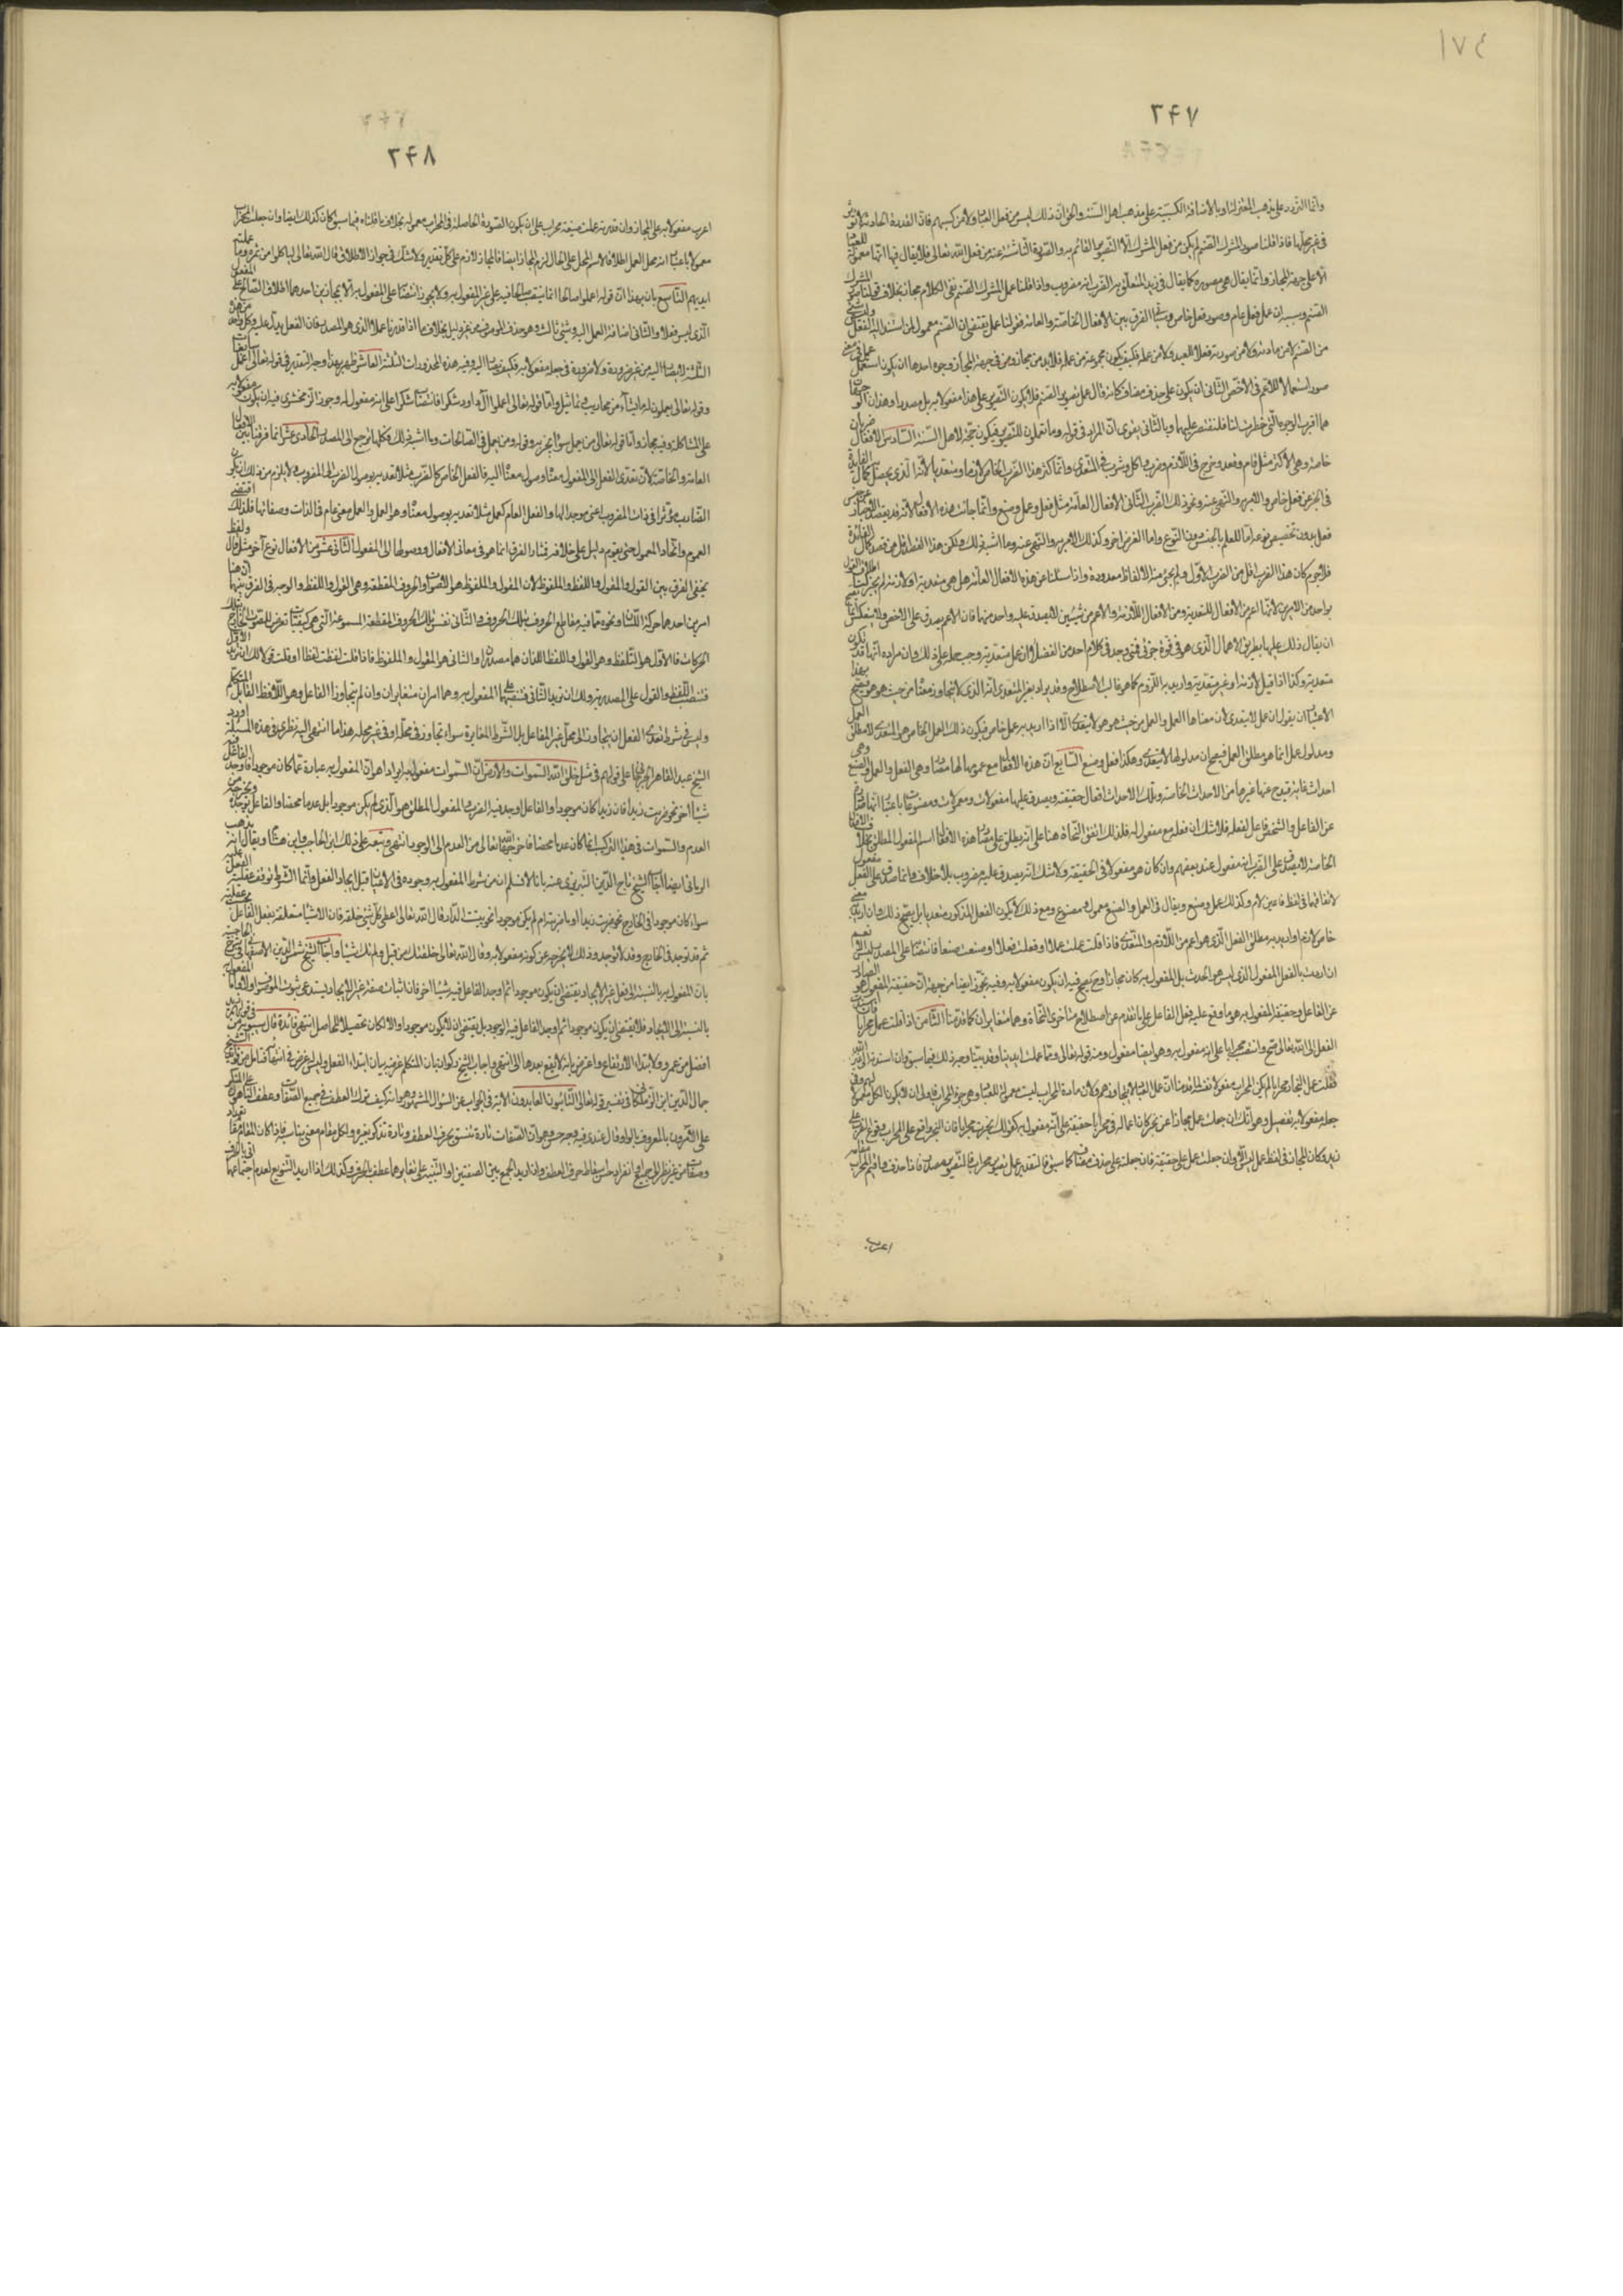 ١٧٤
٢٤٧
وانما التزرد على مذهب المعتزلة او بالاضافة الكسبية على مذهب اهل السنة والحق ان ذلك ليس من فعل العباد ولا من كسبهم فان القدرة الحادثة لا تؤثر
في غير محلها فاذا قلنا صور المشرك الصنم لم يكن من فعل المشرك الا التصوير القائم به والصورة الناشئة عنه من فعل الله تعالى فلا يقال فيها انها معمولة للعبد
الا على جهة المجاز وانما يقال هي مصورة كما يقال في زيد المتعلق به الضرب انه مضروب واذا قلنا عمل المشرك الصنم ففي الكلام مجاز بخلاف قولنا صور المشرك
الصنم وسببه ان عمل فعل عام وصور فعل خاص الفرق بين الافعال الخاصة والعامة فقولنا عمل يقتضي ان الصنم معمول لمن اسند اليه الفعل
من الصنم لا من مادته ولا من صورته فعلا للعبد ولا من عمله فكيف يكون مجموعه من عمله فلا بد من مجاز وفي جهة المجاز وجوه احدها ان يكون استعمل عمل في معنى
صور استعمالا للاعم في الاخص الثاني ان يكون على حذف مضاف كانه قال عمل تصوير الصنم فلا يكون التصوير على هذا مفعولا به بل مصدرا وهذان الوجهان
هما اقرب الوجوه التي خطرت لنا فلنقتصر عليهما وبالثاني يقوى ان المراد في قوله وما تعملون للتصوير فيكون حجة لاهل السنة السادس الافعال ضربان
خاصة وهي الاكثر مثل قام وقعد وخرج في اللازم وضرب واكل وشرب في المتعدي وانما كثر هذا الضرب الخاص لازما ومتعديا لانه الذي يحصل به كمال الفائدة
في الخبر عن فعل خاص والامر به والنهي عنه ونحو ذلك الضرب الثاني الافعال العامة مثل فعل وعمل وصنع وانما جاءت هذه الافعال لانه قد يقصد الاخبار عن جنس
فعل بدون تخصيص نوعه اما للعلم بالجنس دون النوع واما الغرض اخر وكذلك الامر به والنهي عنه وما اشبه ذلك ولكن هذا القصد اقل من قصد كمال الفائدة
فلا جرم كان هذا الضرب اقل من الضرب الاول ولم يجئ منه الا الفاظا معدودة واذا سئلنا عن هذه الافعال العامة هل هي متعدية او لازمة لم يجز اطلاق القول
بواحد من الامرين لانها اعم من الافعال المتعدية ومن الافعال اللازمة والاعم من شيئين لا يصدق عليه واحد منهما فان الاعم يصدق على الاخص ولا ينعكس
ان يقال ذلك عليها بطريق الاهمال الذي هو في قوة جزئي فمتى وجد في كلام احد من الفضلاء ان عمل متعدية وجب حمله على ذلك وان مراده انها قد تكون
متعدية وكذا اذا قيل لازمة او غير متعدية واريد به اللزوم كما هو غالب الاصطلاح وقد يراد بغير المتعدي انه الذي لا يتجاوز معناه من حيث هو هو فيصح بهذا
الاعتبار ان يقول ان عمل لا يتعدى لان معناها العمل والعمل من حيث هو هو لا يتعدى الا اذا اريد به عمل خاص فيكون ذلك العمل الخاص هو المتعدي لا مطلق العمل
ومدلول عمل انما هو مطلق العمل فيصح ان مدلولها لا يتعدى وهكذا فعل وصنع السابع ان هذه الافعال مع عمومها لها مصادر وهي الفعل والعمل والصنع وهي
عن الفاعل والشخص فاعل لفعله فلا شك ان فعله مع مفعول له فلذلك اتفق النحاة هنا على انه يطلق على مصادر هذه الافعال اسم المفعول المطلق بخلاف الافعال
الخاصة لا يصدق على الضرب انه مفعول عند بعضهم وان كان هو مفعولا في الحقيقة ولا شك انه يصدق عليه مضروب بلا خلاف وانما صدق على الفعل مفعول
لاتفاقهما في لفظ فاعين لام وكذلك عمل وصنع ويقال في العمل والصنع معمول ومصنوع ومع ذلك لا يكون الفعل المذكور متعديا بل يصح ذلك وان اريد به معنى
خاص لازم او اريد به مطلق الفعل الذي هو اعم من اللازم والمتعدي فاذا قلت عملت عملا او فعلت فعلا او صنعت صنعا فانتصابه على المصدر ليس الا نعم
ان اردت بالفعل المفعول الذي ليس هو الحدث بل المفعول به كان مجازا وحينئذ يصح فيه ان يكون مفعولا به وفيه تجوز ايضا من جهة ان حقيقة المفعول هو الصادر
عن الفاعل وحقيقة المفعول به هو ما وقع عليه فعل الفاعل على ما تقدم عن اصطلاح متاخري النحاة وهما متغايران كما قدمنا الثامن اذا قلت عمل محرابا فان اسندت
الفعل الى الله تعالى صح وانتصب محرابا على انه مفعول به وهو ايضا مفعول ومنه قوله تعالى مما عملت ايدينا وقد بينا وجه ذلك فيما سبق وان اسندته الى زيد
فقلت عمل النجار محرابا لم يكن المحراب مفعولا
جعله مفعولا به تفصيل وهو انك ان جعلت عمل مجازا عن نجر كان اعماله في محرابا حقيقة على انه مفعول به كقولك نجرت محرابا فان النجر واقع على المحراب وقوع الضرب على
زيد وكان المجاز في لفظ عمل ليس الا وان جعلت عمل على حقيقته فان جعلته على حذف مضاف كما سبق فالتقدير عمل تصوير محراب فالتصوير مصدر فاذا حذف واقيم المحراب مقامه
اعرب
٢٤٨
اعرب مفعولا به على المجاز وان قدرته عملت صنعة محراب على ان يكون الصورة الحاصلة في المحراب معموله بخلاف ما قلناه فيما سبق كان كذلك ايضا وان جعلت المحراب
معمولا باعتبار انه محل العمل اطلاقا لاسم المحل على الحال لزم المجاز ايضا فالمجاز لازم على كل تقدير ولا شك في جواز الاطلاق قال الله تعالى لياكلوا من ثمره وما عملته
ايديهم التاسع بان بهذا ان قوله اعملوا صالحا انما ينتصب صالحا فيه على غير المفعول به ولا يجوز انتصابه على المفعول به الا بمجازين احدهما اطلاق الصالح على المفعول
الذي ليس فعلا والثاني اضافة العمل اليه وشيء ثالث وهو حذف الموصوف من غير دليل بخلاف ما اذا قدرنا عملا الذي هو المصدر فان الفعل يدل عليه وكل واحد من هذه
الثلثة لا يصار اليه من غير ضرورة ولا ضرورة في جعله مفعولا به فكيف يصار اليه وفيه هذه المحذورات الثلثة العاشر ظهر بهذا وجه التقدير في قوله تعالى ان اعمل سابغات
وقوله تعالى يعملون له ما يشاء من محاريب وتماثيل واما قوله تعالى اعملوا آل داود شكرا فانتصاب شكرا على انه مفعول له وجوز الزمخشري فيه ان يكون مفعولا به
على المشاكلة وفيه مجاز واما قوله تعالى من يعمل سوءا يجز به وقوله ومن يعمل من الصالحات وما اشبه ذلك فكلها ترجع الى المصدر الحادي عشر انما فرقنا بين الافعال
العامة والخاصة لان تعدي الفعل الى المفعول معناه وصول معناه اليه فالفعل الخاص كالضرب مثلا تعديه بوصول الضرب الى المضروب ولا يلزم من ذلك ان يكون
الضارب مؤثرا في ذات المضروب اعني موجدا لها والفعل العام كعمل مثلا تعديه بوصول معناه وهو العمل والعمل معنى عام في الذات وصفاتها فلذلك اقتضى
العموم وايجاد المعمول حتى يقوم دليل على خلافه فمثار الفرق انما هو في معاني الافعال ووصولها الى المفعول الثاني عشر من الافعال نوع آخر مثل قال ولفظ
يخفى الفرق بين القول والمقول واللفظ والملفوظ لان المقول والملفوظ هو الاصوات والحروف المقطعة وهي القول واللفظ والوجه في الفرق بينهما ان هنا
امرين احدهما حركة اللسان ونحوه مما فيه مقاطع الحروف بتلك الحروف والثاني نفس تلك الحروف المقطعة المسموعة التي هي كيفيات تعرض للصوت الخارج بتلك
الحركات فالاول هو التلفظ وهو القول واللفظ اللذان هما مصدران والثاني هو المقول والملفوظ فاذا قلت لفظت لفظا او قلت قولا لك ان تريد الاول
فتنصب اللفظ والقول على المصدرية ولك ان تريد الثاني فتنصبهما على المفعول به وهما امران متغايران وان لم يتجاوزا الفاعل وهو اللافظ القائل المتكلم
وليس من شرط تعدي الفعل ان يتجاوز الى محل غير الفاعل بل الشرط المغايرة سواء تجاوز في محله او في غير محله هذا ما انتهى اليه نظري في هذه المسئلة اورد
الشيخ عبد القاهر الجرجاني على قولهم في مثل خلق الله السموات والارض ان السموات مفعول به ايرادا هو ان المفعول به عبارة عما كان موجودا فاوجد الفاعل فيه
شيئا آخر نحو ضربت زيدا فان زيدا كان موجودا والفاعل اوجد فيه الضرب والمفعول المطلق هو الذي لم يكن موجودا بل عدما محضا والفاعل يوجده ويخرجه من
العدم والسموات في هذا التركيب انما كان عدما محضا فاخرجها الله تعالى من العدم الى الوجود انتهى وتبعه على ذلك ابن الحاجب وابن هشام ويقال انه مذهب
الرماني ايضا اجاب الشيخ تاج الدين التبريزي عنه بانا لا نسلم ان من شرط المفعول به وجوده في الاعيان قبل ايجاد الفعل وانما الشرط توقف عقلية الفعل عليه
سواء كان موجودا في الخارج نحو ضربت زيدا او ما ضربته ام لم يكن موجودا نحو بنيت الدار قال الله تعالى اعطى كل شيء خلقه فان الاشياء متعلقة بفعل الفاعل بحسب عقليته
ثم قد توجد في الخارج وقد لا توجد وذلك لا يخرجه عن كونه مفعولا به وقال الله تعالى خلقتك من قبل ولم تك شيئا واجاب الشيخ شمس الدين الاصفهاني في شرح الحاجبية
بان المفعول به بالنسبة الى فعل غير الايجاد يقتضي ان يكون موجودا ثم اوجد الفاعل فيه شيئا آخر فان اثبات صفة غير الايجاد يستدعي ثبوت الموصوف اولا واما المفعول به
بالنسبة الى الايجاد فلا يقتضي ان يكون موجودا ثم اوجد الفاعل فيه الوجود بل يقتضي ان لا يكون موجودا والا لكان تحصيلا للحاصل انتهى فائدة قال سيبويه من في قولك زيد
افضل من عمرو لابتداء الارتفاع واعترض بانه لا يقع بعدها الى انتهى واجاب الشيخ ركن الدين بان المتكلم غرضه بيان ابتداء الفعل وليس له غرض في انتهائه
جمال الدين ابن الزملكاني في تفسير قوله تعالى التائبون العابدون الآية في الجواب عن السؤال المشهور وهو انه كيف ترك العطف في جميع الصفات وعطف الناهون عن المنكر
على الآمرون بالمعروف بالواو قال عندي فيه وجه حسن وهو ان الصفات تارة تنسق بحرف العطف وتارة تذكر بغيره ولكل مقام معنى يناسبه فاذا كان المقام مقام تعداد
وصفات من غير نظر الى جمع او انفراد حسن اسقاط حرف العطف وان اريد الجمع بين الصفتين او التنبيه على تغايرهما عطف بالحرف وكذلك اذا اريد التنويع لعدم اجتماعهما اتي بالحرف